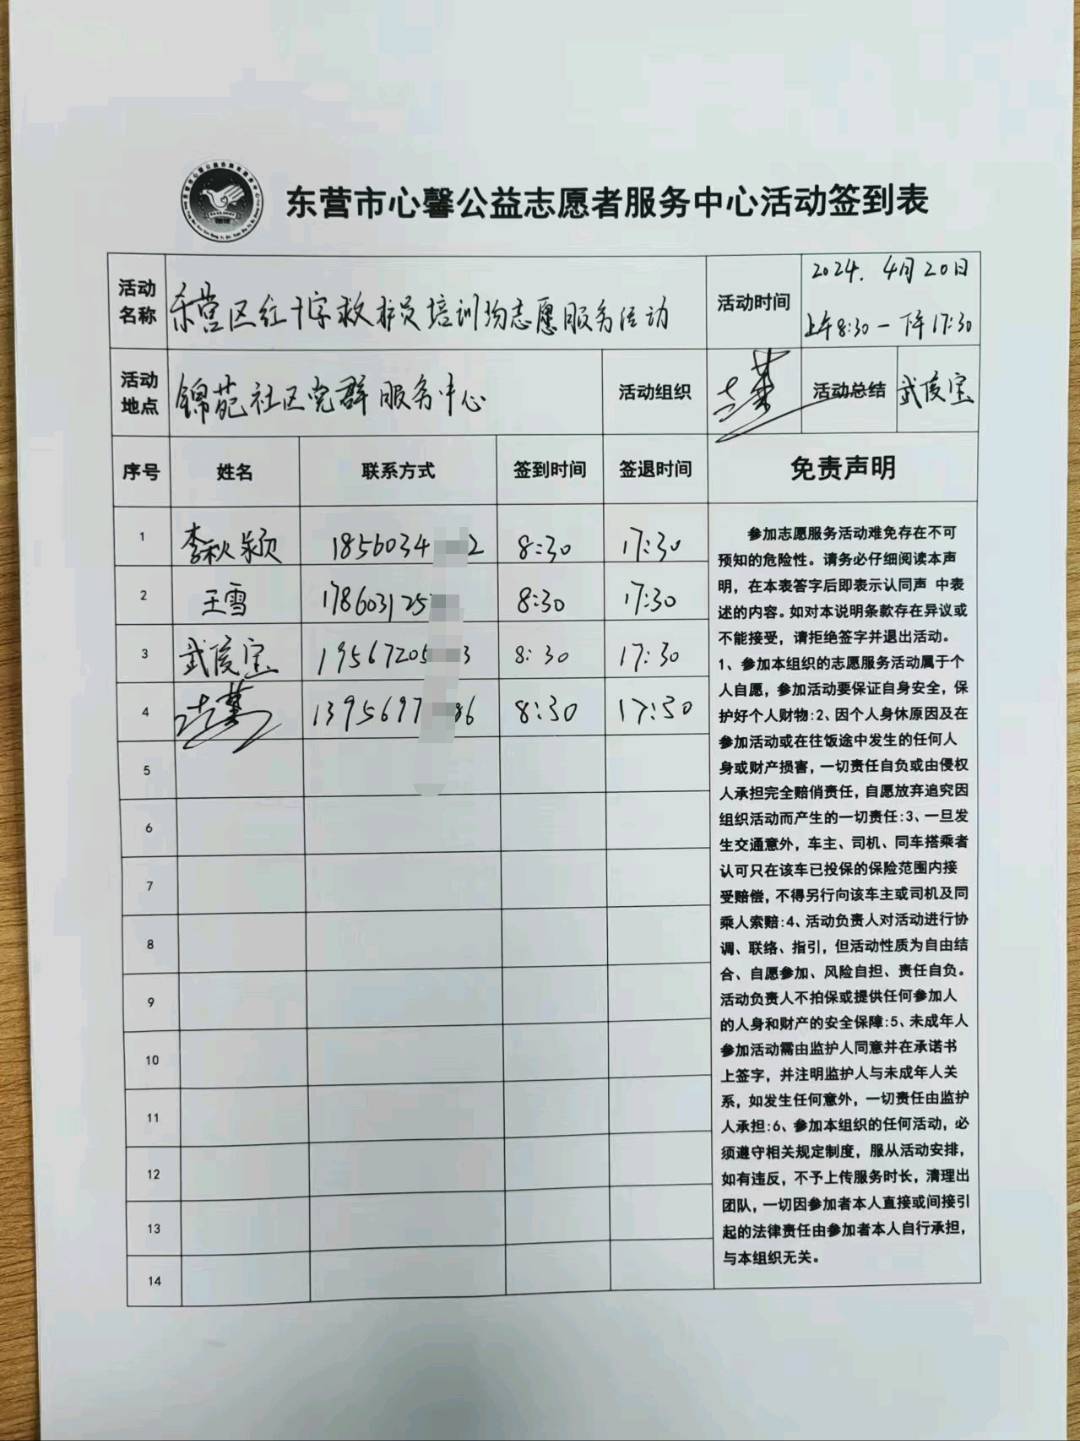 东营市心馨公益志愿者服务中心活动签到表
活动名称 东营区红十字救护员培训场志愿服务活动 活动时间 2024. 4月20日
上午8:30-下午17:30
活动地点 锦苑社区党群服务中心 活动组织 活动总结 武俊宝
序号 姓名 联系方式 签到时间 签退时间 免责声明
1 李秋颖 1856034 2 8:30 17:30
2 王雪 178603125 8:30 17:30
3 武俊宝 19567205 3 8:30 17:30
4 1395697 86 8:30 17:30
5
6
7
8
9
10
11
12
13
14
参加志愿服务活动难免存在不可
预知的危险性。请务必仔细阅读本声
明，在本表答字后即表示认同声 中表
述的内容。如对本说明条款存在异议或
不能接受，请拒绝签字并退出活动。
1、参加本组织的志愿服务活动属于个
人自愿，参加活动要保证自身安全，保
护好个人财物:2、因个人身休原因及在
参加活动或在往饭途中发生的任何人
身或财产损害，一切责任自负或由侵权
人承担完全赔俏责任，自愿放弃追究因
组织活动而产生的一切责任:3、一旦发
生交通意外，车主、司机、同车搭乘者
认可只在该车已投保的保险范围内接
受赔偿，不得另行向该车主或司机及同
乘人索赔:4、活动负责人对活动进行协
调、联络、指引，但活动性质为自由结
合、自愿参加、风险自担、责任自负。
活动负责人不拍保或提供任何参加人
的人身和财产的安全保障:5、未成年人
参加活动需由监护人同意并在承诺书
上签字，并注明监护人与未成年人关
系，如发生任何意外，一切责任由监护
人承担:6、参加本组织的任何活动，必
须遵守相关规定制度，服从活动安排，
如有违反，不予上传服务时长，清理出
团队，一切因参加者本人直接或间接引
起的法律责任由参加者本人自行承担，
与本组织无关。